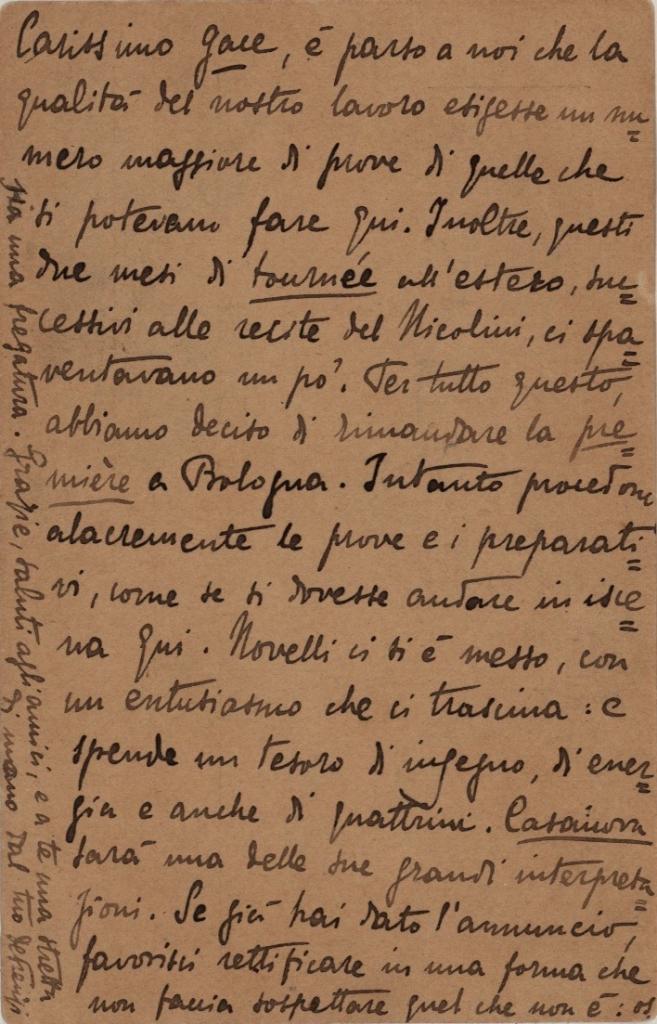 Carissimo Gace, è parso a noi che la
qualità del nostro lavoro esigesse un nu=
mero maggiore di prove di quelle che
si potevano fare qui. Inoltre, questi
due mesi di tournée all'estero, suc=
cessivi alle recite del Niccolini, ci spa=
ventavano un po'. Per tutto questo,
abbiamo deciso di rimandare la pre=
mière a Bologna. Intanto procedono
alacremente le prove e i preparati=
vi, come se si dovesse andare in isce=
na qui. Novelli ci si è messo, con
un entusiasmo che ci trascina: e
spende un tesoro di ingegno, di ener=
gia e anche di quattrini. Casanova
sarà una delle sue grandi interpreta=
zioni. Se già hai dato l'annuncio,
favorisci rettificare in una forma che
non faccia sospettare quel che non è: os
sia una fregatura. Grazie, saluti agli amici, e a te una stretta
di mano dal tuo